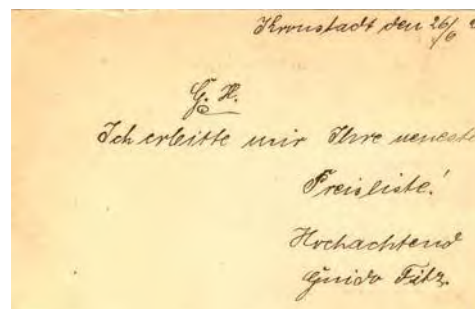 Kronstadt den 26/6
G. H.
Ich erbitte mir Ihre neueste
Preisliste!
Hochachtend
Guido Fitz.